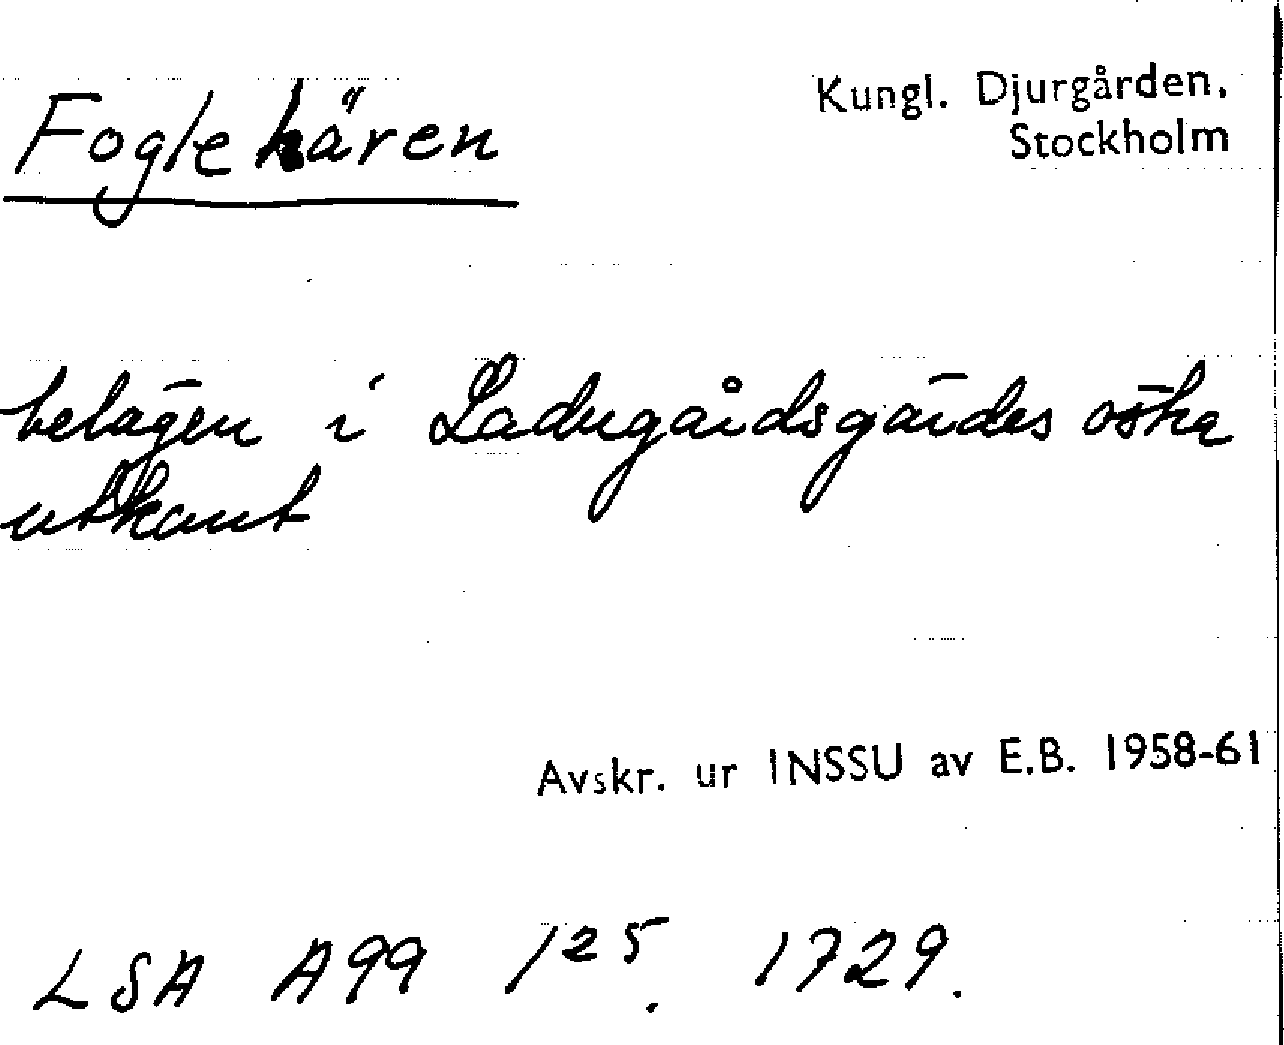 Foglehären
Kungl. Djurgården,
Stockholm
belägen i Ladugårdsgärdes östra
utkant
Avskr. ur INSSU av E.B. 1958-61
LSA A99 1²⁵. 1729.